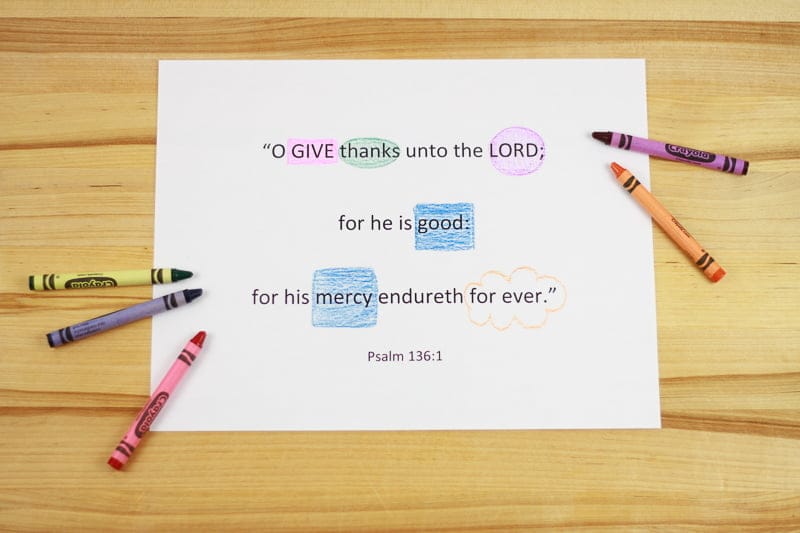 “O GIVE thanks unto the LORD;
for he is good:
for his mercy endureth for ever.”
Psalm 136:1
Crayola
Crayola
Crayola